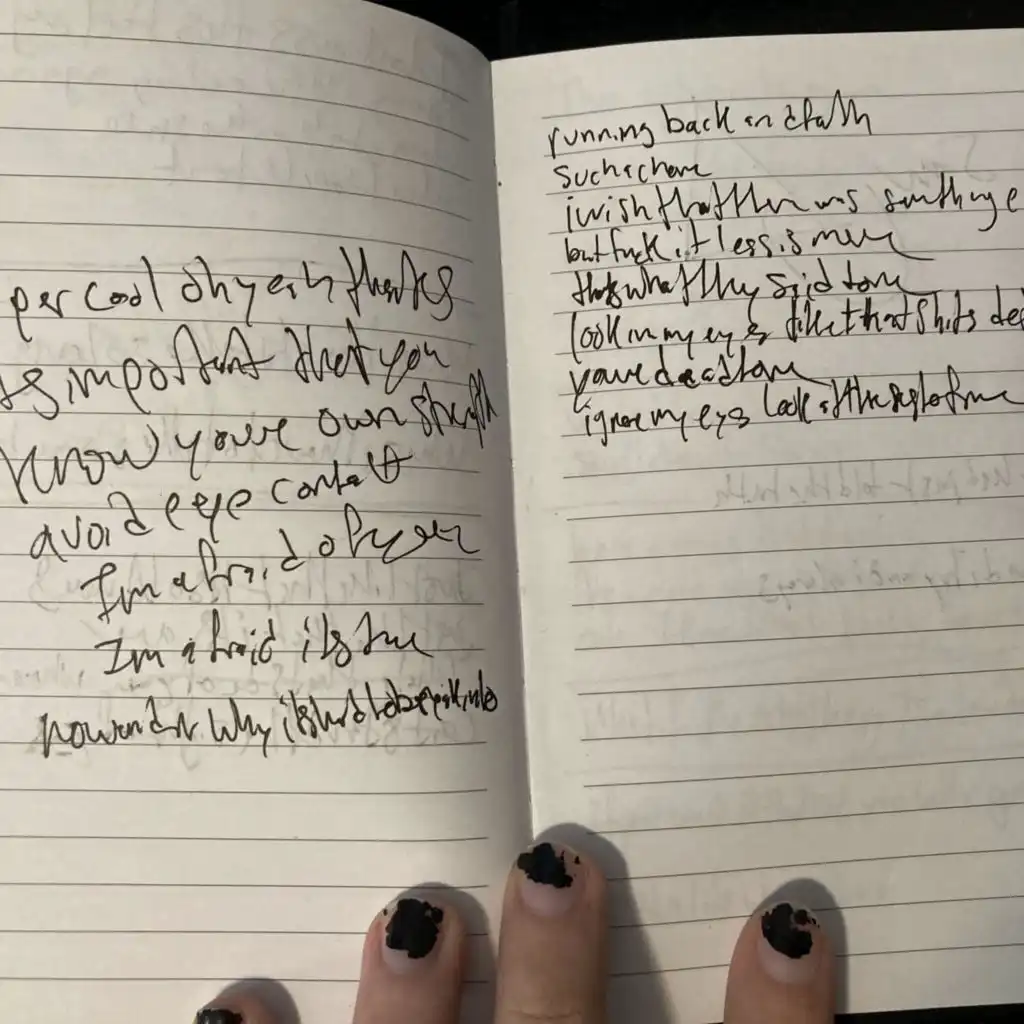 per cool oh yeah thanks
its important that you
know youre own strength
avoid eye contact
Im afraid of
Im afraid its true
no wonder why its hard to speak
running back and forth
such a chore
i wish that there was something
but fuck it less is more
thats what they said to me
look in my eyes like that shits
youre dead to me
ignore my eyes look at the rest of me